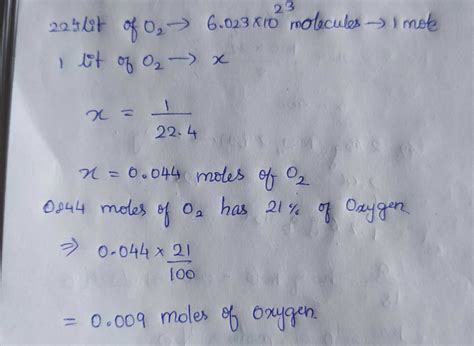 22.4 lit of O₂ → 6.023×10²³ molecules → 1 mole
1 lit of O₂ → x
x = 1/22.4
x = 0.044 moles of O₂
0.044 moles of O₂ has 21% of Oxygen
⇒ 0.044 × 21/100
= 0.009 moles of Oxygen.